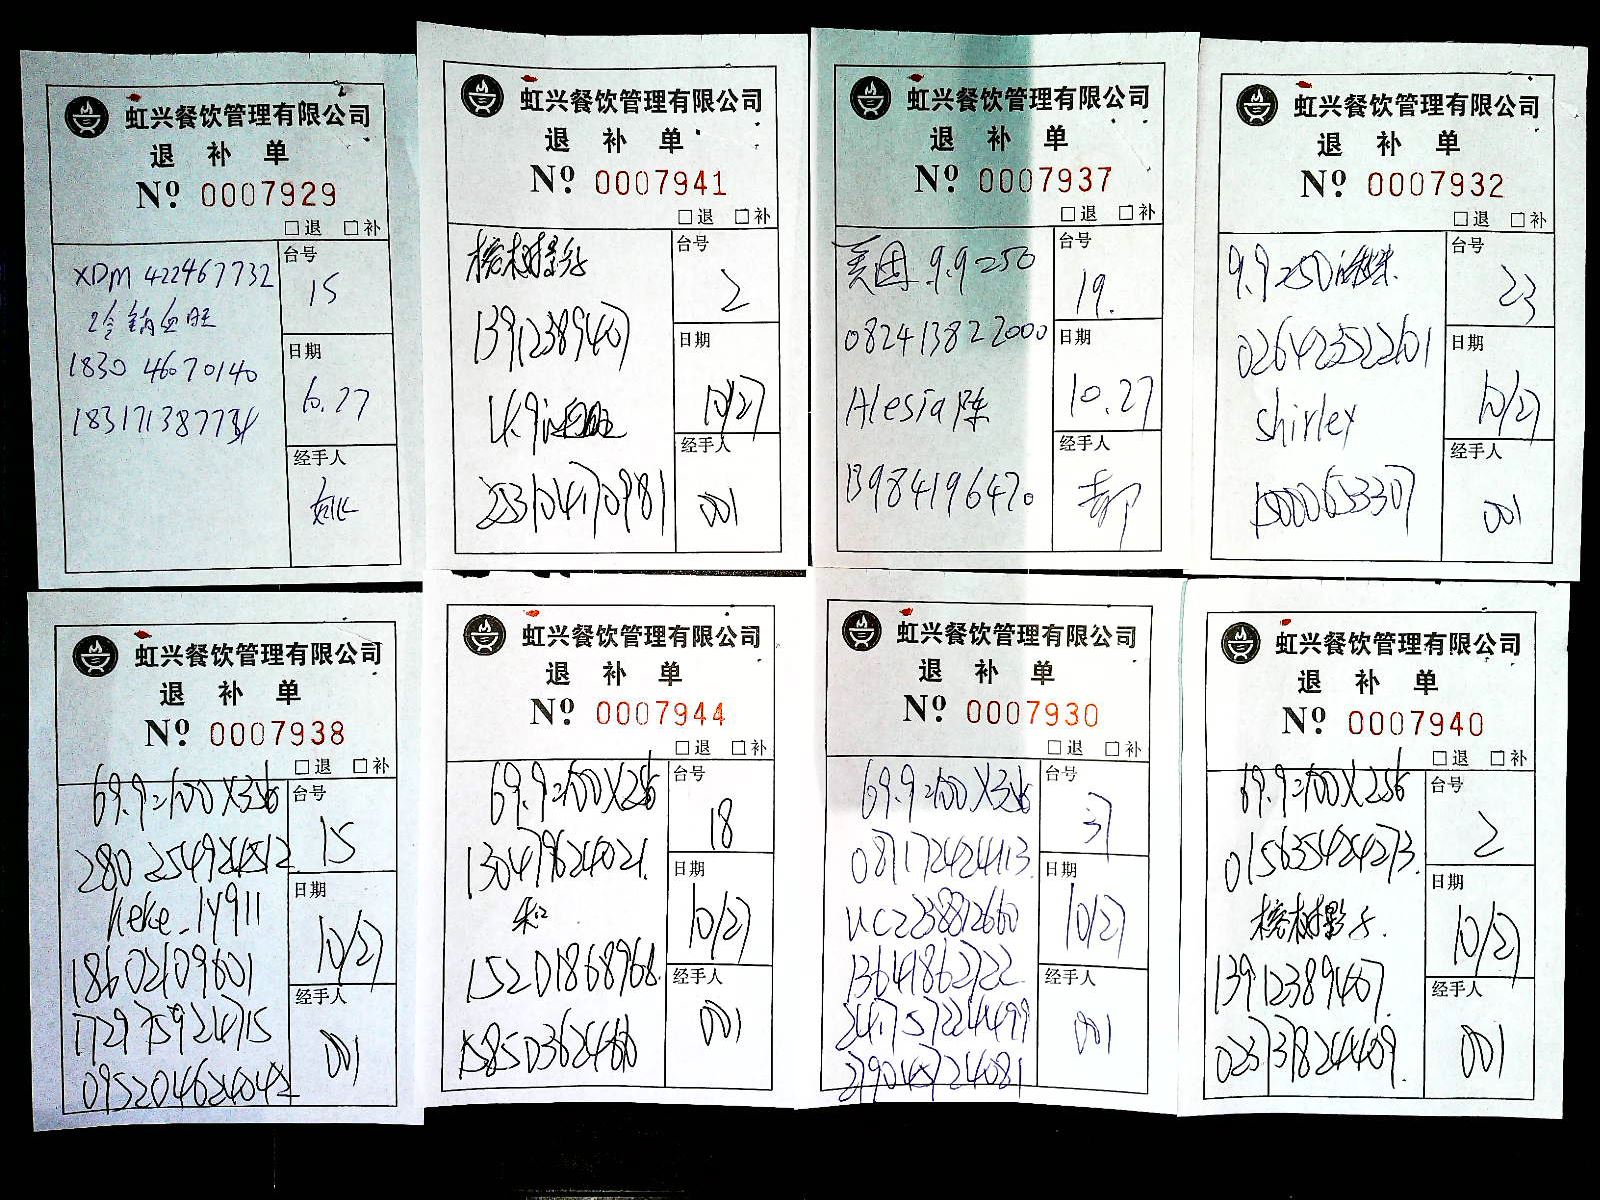 虹兴餐饮管理有限公司
退 补 单
Nº 0007929
□退 □补
XDM 422467732
1830 46070140
台号
15
日期
10.27
经手人
虹兴餐饮管理有限公司
退 补 单
Nº 0007941
□退 □补
榕树影子
13912389407
台号
2
日期
10/27
经手人
001
虹兴餐饮管理有限公司
退 补 单
Nº 0007937
□退 □补
美团 9.9=250
082413822000
Alesia陈
13984196470
台号
19.
日期
10.27
经手人
虹兴餐饮管理有限公司
退 补 单
Nº 0007932
□退 □补
9.9=250
026423522601
shirley
15000653307
台号
23
日期
10/27
经手人
001
虹兴餐饮管理有限公司
退 补 单
Nº 0007938
□退 □补
69.9=100X3
280 254924512
keke_ly911
18602109601
172975924715
095204624042
台号
15
日期
10/27
经手人
001
虹兴餐饮管理有限公司
退 补 单
Nº 0007944
□退 □补
69.9=100X2
130479624021.
15201868968.
台号
18
日期
10/27
经手人
001
虹兴餐饮管理有限公司
退 补 单
Nº 0007930
□退 □补
69.9=100X3
087172424113
UC2238812660
13641862722
241757224499
台号
日期
10/27
经手人
001
虹兴餐饮管理有限公司
退 补 单
Nº 0007940
□退 □补
69.9=100X2
015635424273.
榕树影子.
13912389407.
023731824409.
台号
2
日期
10/27
经手人
001